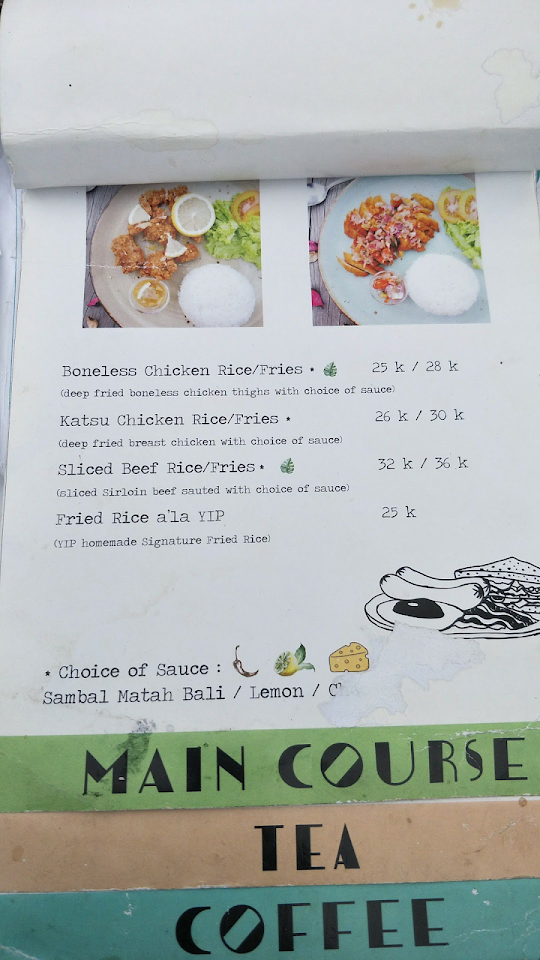 Boneless Chicken Rice/Fries * 25 k / 28 k
(deep fried boneless chicken thighs with choice of sauce)
Katsu Chicken Rice/Fries * 26 k / 30 k
(deep fried breast chicken with choice of sauce)
Sliced Beef Rice/Fries * 32 k / 36 k
(sliced Sirloin beef sauted with choice of sauce)
Fried Rice a'la YIP 25 k
(YIP homemade Signature Fried Rice)
* Choice of Sauce :
Sambal Matah Bali / Lemon /
MAIN COURSE
TEA
COFFEE